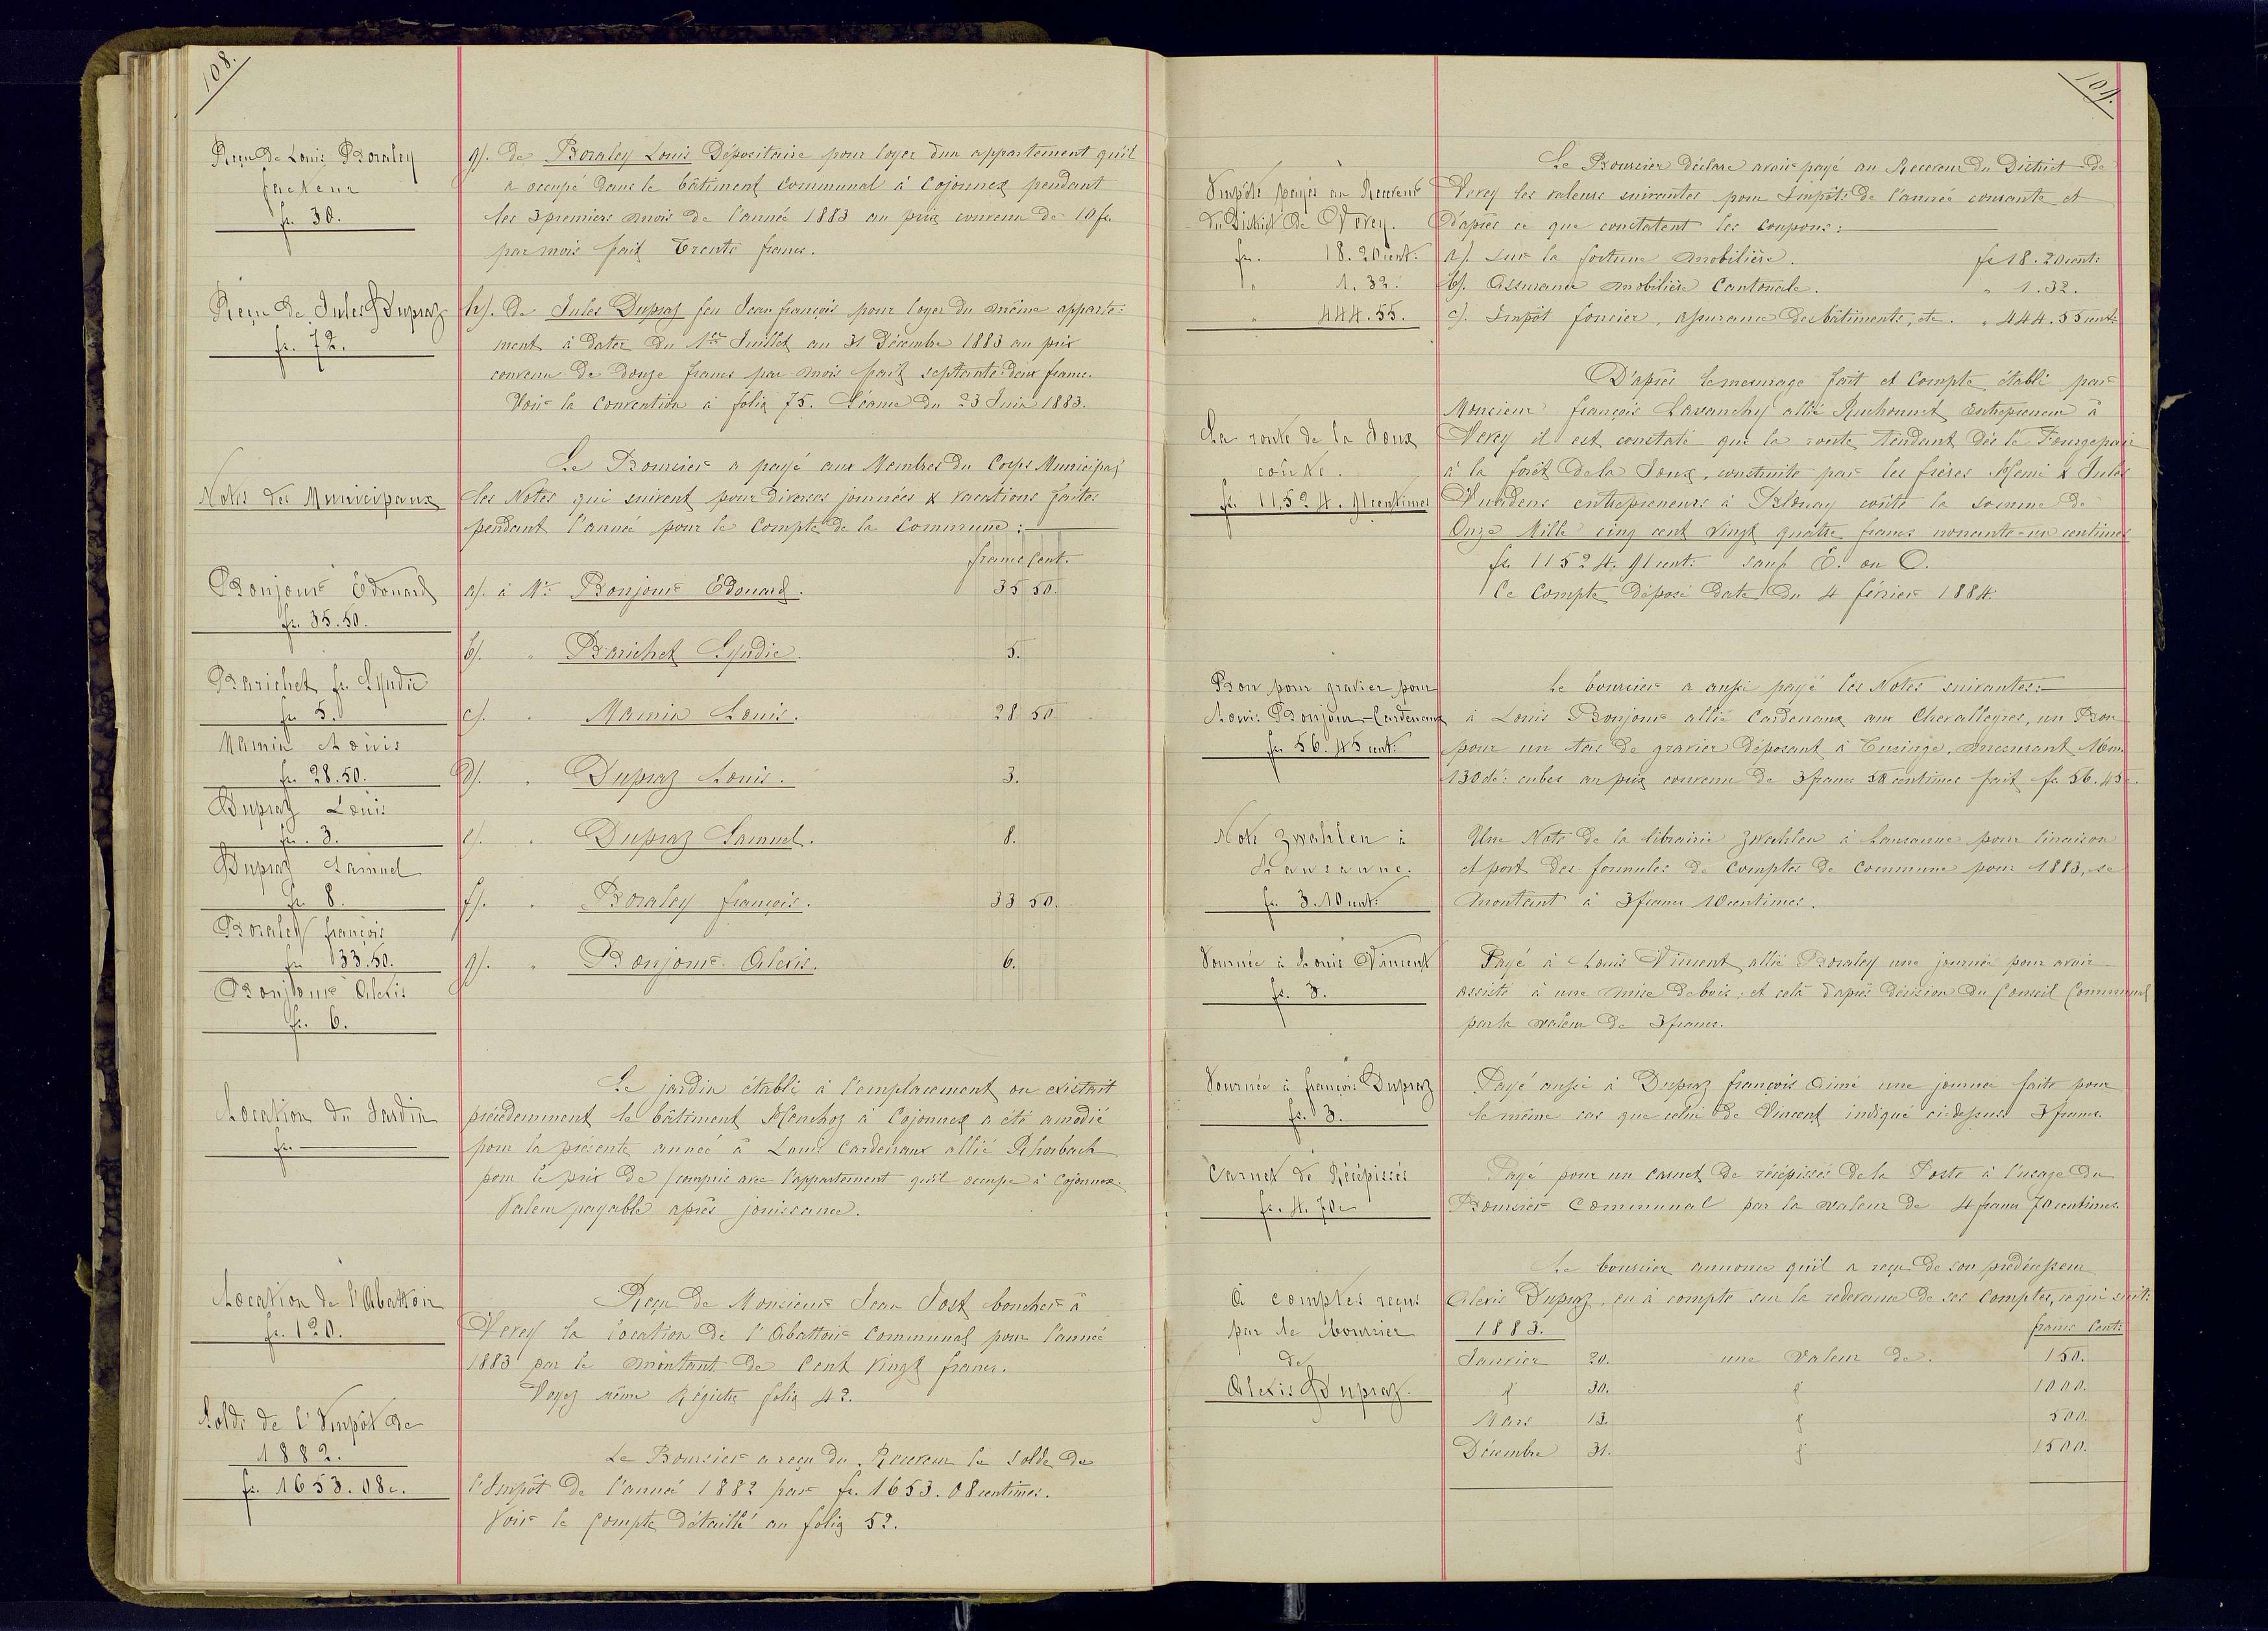 108.
Reçu de Louis Boraley
facteur
fr. 30.
g). de Boraley Louis Dépositaire pour loyer d'un appartement qu'il
a occupé dans le bâtiment communal à Cojonnex pendant
les 3 premiers mois de l'année 1883 au prix convenu de 10 fr.
par mois fait trente francs.
Reçu de Jules Dupraz
fr. 72.
h). de Jules Dupraz feu Jean françois pour loyer du même apparte:
ment à dater du 1er Juillet au 31 Décembre 1883 au prix
convenu de douze francs par mois fait septante-deux francs.
Voir la Convention à folio 75. Séance du 23 Juin 1883.
Notes des Municipaux
Le Boursier a payé aux Membres du Corps Municipal
les Notes qui suivent pour diverses journées & vacations faites
pendant l'année pour le Compte de la Commune :
francs Cent.
Bonjour Edouard
fr. 35.50.
a). à Mr. Bonjour Edouard. 35 50.
b). " Barichet Syndic. 5.
Barichet fr. Syndic
fr. 5.
c). " Mamin Louis. 28 50
Mamin Louis
fr. 28.50.
d). " Dupraz Louis. 3.
Dupraz Louis
fr. 3.
e). " Dupraz Samuel. 8.
Dupraz Samuel
fr. 8.
f). " Boraley françois. 33 50.
Boraley françois
fr. 33.50.
g). " Bonjour Alexis. 6.
Bonjour Alexis
fr. 6.
Location du Jardin
fr. —
Le jardin établi à l'emplacement ou existait
précédemment le bâtiment Henchoz à Cojonnex a été amodié
pour la présente année à Louis Cardenaux allié Rhorbach
pour le prix de (compris avec l'appartement qu'il occupe à Cojonnex.
Valeur payable après jouissance.
Location de l'Abattoir
fr. 120.
Reçu de Monsieur Jean Jost boucher à
Vevey la location de l'Abattoir Communal pour l'année
1883 par le montant de Cent vingt francs.
Voyez même Régistre folio 42.
Solde de l'Impôt de
1882.
fr. 1653.08c.
Le Boursier a reçu du Receveur le solde de
l'Impôt de l'année 1882 par fr. 1653.08 centimes.
Voir le Compte détaillé au folio 52.
109.
Impôts payés au Receveur
du District de Vevey.
fr. 18.20 cent.
" 1.32.
" 444.55.
Le Boursier déclare avoir payé au Receveur du District de
Vevey les valeurs suivantes pour Impôts de l'année courante et
d'après ce que constatent les coupons :
a). Sur la fortune mobilière. fr 18.20 cent:
b). Assurance mobilière Cantonale. " 1.32.
c). Impôt foncier, assurance des bâtiments, etc. " 444.55 cent:
La route de la Joux
coûte.
fr. 11,524.91 centimes
D'après le mesurage fait et Compte établi par
Monsieur françois Lavanchy allié Ruchonnet Entrepreneur à
Vevey il est constaté que la route tendant dès le
à la forêt de la Joux, construite par les frères Henri & Jules
Vuadens entrepreneurs à Blonay coûte la somme de
Onze Mille cinq cent vingt quatre francs nonante-un centimes
fr. 11524.91 cent: sauf E. ou O.
Ce Compte déposé date du 4 février 1884.
Bon pour gravier pour
Louis Bonjour-Cardenaux
fr. 56.45 cent:
Le boursier a aussi payé les Notes suivantes :
à Louis Bonjour allié Cardenaux aux Chevalleyres, un Bon
pour un tas de gravier déposant à mesurant 16 m
130 dé: cubes au prix convenu de 3 francs 50 centimes fait fr. 56.45c.
Note Zwahlen à
Lausanne.
fr. 3.10 cent:
Une Note de la librairie Zwahlen à Lausanne pour livraison
et port des formules de Comptes de Commune pour 1883, se
montant à 3 francs 10 centimes.
Journée à Louis Vincent
fr. 3.
Payé à Louis Vincent allié Boraley une journée pour avoir
assisté à une mise de bois ; et celà d'après décision du Conseil Communal
par la valeur de 3 francs.
Journée à françois Dupraz
fr. 3.
Payé aussi à Dupraz françois Aimé une journée faite pour
le même cas que celui de Vincent indiqué ci-dessus 3 francs.
Carnet de Récépissés
fr. 4.70c
Payé pour un carnet de récépissés de la Poste à l'usage du
Boursier Communal par la valeur de 4 francs 70 centimes.
À comptes reçus
par le boursier
de
Alexis Dupraz.
Le boursier annonce qu'il a reçu de son prédécesseur
Alexis Dupraz, en à compte sur la redevance de ses Comptes, ce qui suit:
1883. francs Cent:
Janvier 20. une valeur de. 150.
" 30. " 1000.
Mars 13. " 500.
Décembre 31. " 1500.